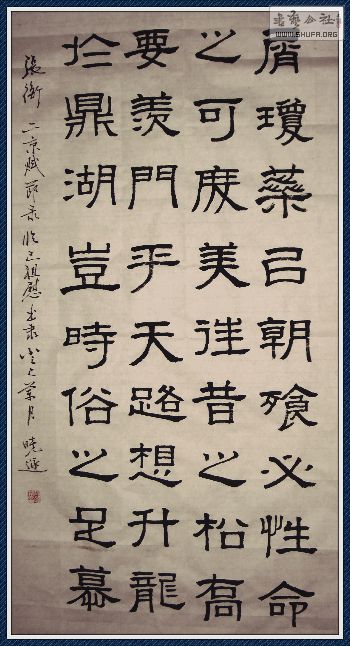 屑瓊蘂㠯朝飱必性命
之可度美往昔之松喬
要羨門乎天路想升龍
於鼎湖豈時俗之足慕
張衡二京賦節录
書藝公社
WWW.SHUFA.ORG